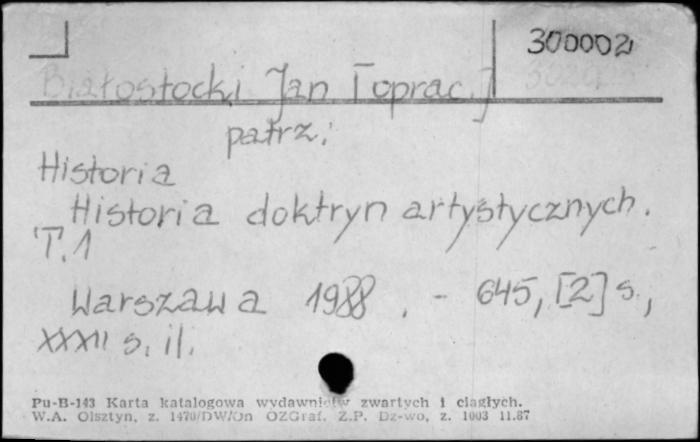 300002
Białostocki Jan [oprac.]
patrz:
Historia
Historia doktryn artystycznych.
T.1
Warszawa 1988. - 645, [2] s.,
XXXII s. il.
Pu-B-143 Karta katalogowa wydawnictw zwartych i ciągłych.
W.A. Olsztyn, z. 1470/DW/On OZGraf. Z.P. Dz-wo, z. 1003 11.87